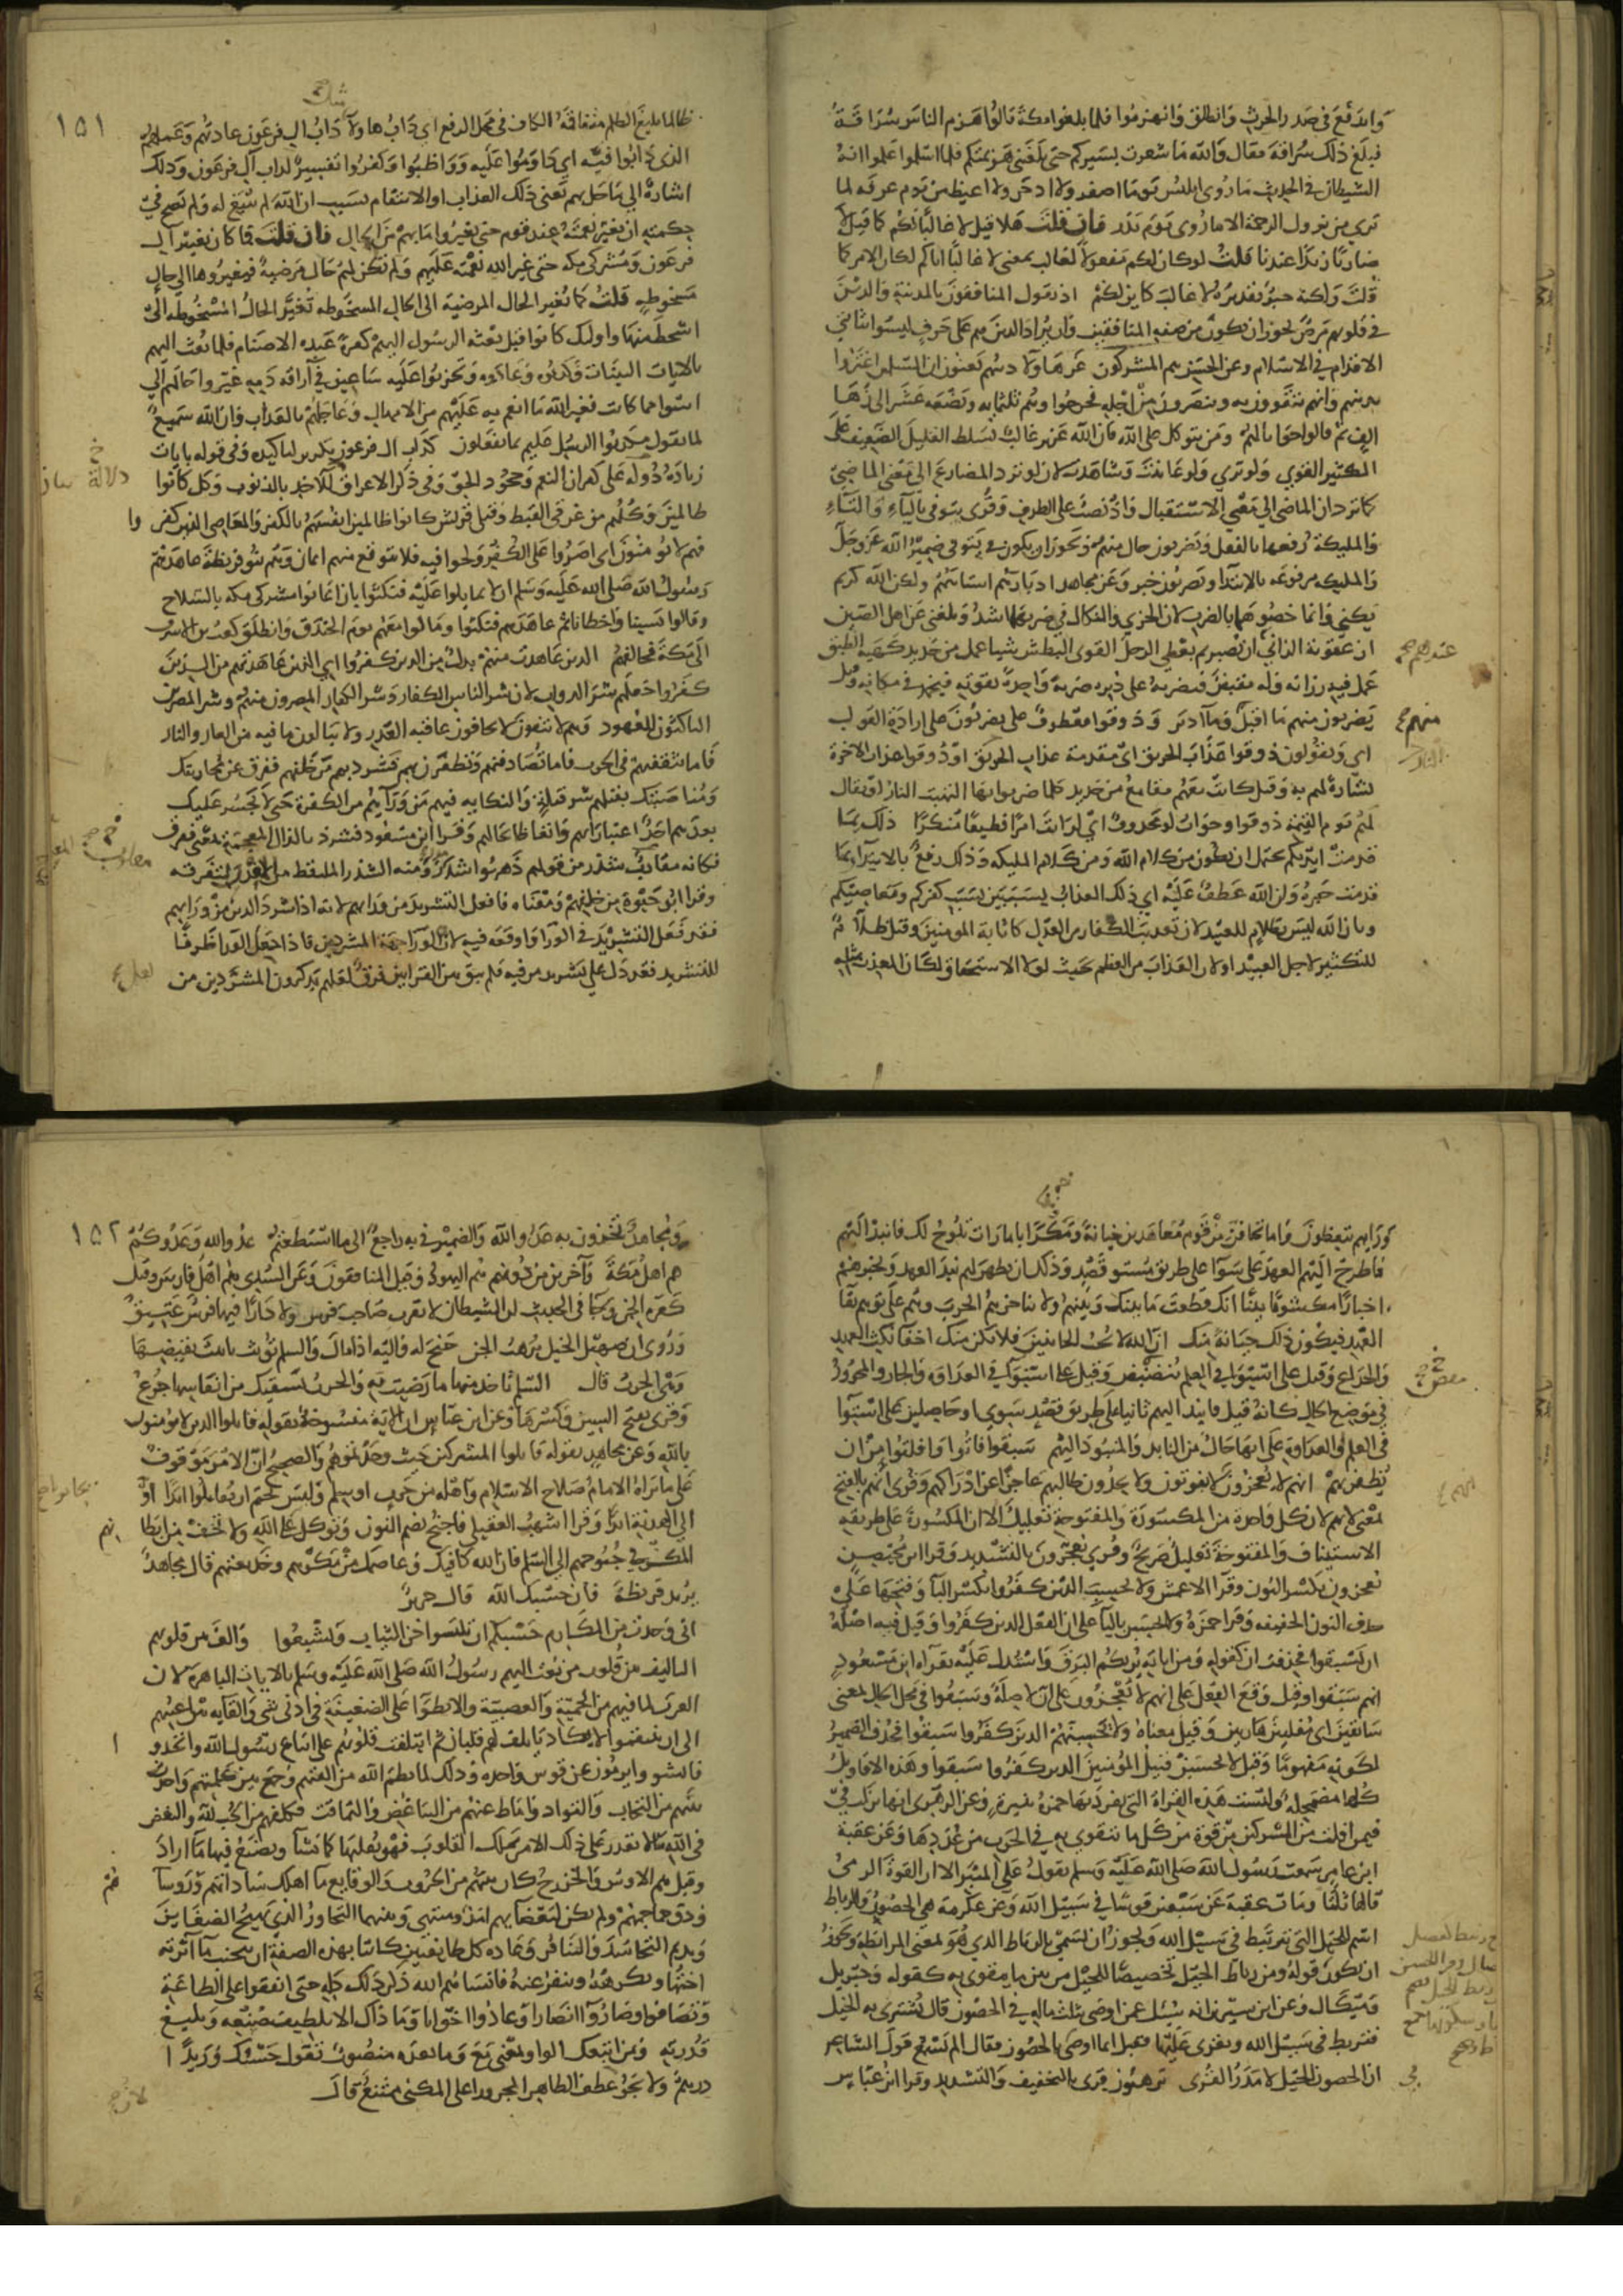 واندفع في صدر الحرث وانطلق وانهزموا فلما بلغوا مكة قالوا هزم الناس سراقة
فبلغ ذلك سراقة فقال والله ما شعرت بمسيركم حتى بلغتني هزيمتكم فلما اسلموا علموا انه
الشيطان في الحديث ما روي ابليس يوما اصغر ولا ادحر ولا اغيظ من يوم عرفه لما
يرى من نزول الرحمة الا ما روي يوم بدر فان قلت هلا قيل لا غالبا لكم كما قيل لا
ضاربا زيدا عندنا قلت لو كان لكم مفعولا لغالب بمعنى لا غالبا اياكم لكان الامر كما
قلت ولكنه خبر تقديره لا غالب كاين لكم اذ يقول المنافقون بالمدينة والذين
في قلوبهم مرض يجوز ان يكون من صفة المنافقين وان يراد الذين هم على حرف ليسوا بثابتي
الاقدام في الاسلام وعن الحسن هم المشركون غر هاولاء دينهم يعنون ان المسلمين اغتروا
بدينهم وانهم يتقوون به وينصرون من اجله فخرجوا وهم ثلثمايه وبضعه عشر الى زها
الف ثم قال جوابا لهم ومن يتوكل على الله فان الله عزيز غالب يسلط القليل الضعيف على
الكثير القوي ولو ترى ولو عاينت وشاهدت لان لو ترد المضارع الى معنى الماضي
كما ترد ان الماضي الى معنى الاستقبال واذ نصب على الظرف وقرى يتوفى بالياء والتاء
والمليكة رفعها بالفعل ويضربون حال منهم ويجوز ان يكون في يتوفى ضمير الله عز وجل
والمليكه مرفوعه بالابتدا ويضربون خبر وعن مجاهد ادبارهم استاههم ولكن الله كريم
يكني وانما خصوهما بالضرب لان الخزي والنكال في ضربهما اشد وبلغني عن اهل الصين
ان عقوبة الزاني عندهم ان يصبر ثم يعطى الرجل القوى البطش شيا عمل من حديد كهيئة الطبق
فيه رزانه وله مقبض فيضربه على دبره ضربة واحدة بقوته فيجمد في مكانه وقيل
يضربون منهم ما اقبل وما ادبر وذوقوا معطوف على يضربون على ارادة القول
اي ويقولون ذوقوا عذاب الحريق اي مقدمة عذاب الحريق او ذوقوا عذاب الاخرة
بشارة لهم به وقيل كانت معهم مقامع من حديد كلما ضربوا بها التهبت النار او يقال
لهم يوم القيمة ذوقوا وجواب لو محذوف اي لرايت امرا فظيعا منكرا ذلك بما
قدمت ايديكم يحتمل ان يكون من كلام الله ومن كلام المليكه وذلك رفع بالابتداء وبما
قدمت خبره وان الله عطف عليه اي ذلك العذاب بسببين بسبب كفركم ومعاصيكم
وبان الله ليس بظلام للعبيد لان تعذيب الكفار من العدل كاثابة المومنين وقيل ظلام
للتكثير لاجل العبيد او لان العذاب من العظم بحيث لولا الاستحقاق لكان المعذب بمثله
عندهم صح
منهم
١٥١
ظالما بليغ الظلم متفاقمه الكاف في محل الرفع اي داب هاولاء داب ال فرعون عادتهم وعملهم
الذى دابوا فيه اي داوموا عليه وواظبوا وكفروا تفسير لداب آل فرعون وذلك
اشارة الى ما حل بهم يعني ذلك العذاب او الانتقام بسبب ان الله لم ينبغ له ولم يصح في
حكمته ان يغير نعمته عند قوم حتى يغيروا ما بهم من الحال فان قلت فما كان من تغيير ال
فرعون ومشركي مكه حتى غير الله نعمته عليهم ولم تكن لهم حال مرضية فيغيروها الى حال
مسخوطة قلت كما تغير الحال المرضيه الى الحال المسخوطه تغير الحال المسخوطه الى
اسخط منها واوليك كانوا قبل بعثه الرسول اليهم كفرة عبده الاصنام فلما بعث اليهم
بالايات البينات وكذبوه وعادوه وتحزبوا عليه ساعين في اراقه دمه غيروا حالهم الي
اسوا مما كانت فغير الله ما انعم به عليهم من الامهال وعاجلهم بالعذاب وان الله سميع
لما يقول مكذبوا الرسل عليم بما يفعلون كداب ال فرعون تكرير للتاكيد وفي قوله بايات
زيادة دلالة على كفران النعم وجحود الحق وفي ذكر الاغراق بيان للاخذ بالذنوب وكل كانوا
ظالمين وكلهم من غرقى القبط وقتلى قريش كانوا ظالمين انفسهم بالكفر والمعاصي الذين كفروا
فهم لا يومنون اى اصروا على الكفر ولجوا فيه فلا يتوقع منهم ايمان وهم بنو قريظة عاهدهم
رسول الله صلى الله عليه وسلم ان لا يمايلوا عليه فنكثوا بان اعانوا مشركي مكه بالسلاح
وقالوا نسينا واخطانا ثم عاهدهم فنكثوا ومالوا معهم يوم الخندق وانطلق كعب بن الاشرف
الى مكة فحالفهم الذين عاهدت منهم بدل من الذين كفروا اي الذين عاهدتهم من الذين
كفروا جعلهم شر الدواب لان شر الناس الكفار وشر الكفار المصرون منهم وشر المصرين
الناكثون للعهود وهم لا يتقون لا يخافون عاقبه الغدر ولا يبالون ما فيه من العار والنار
فاما تثقفنهم في الحرب فاما تصادفنهم وتظفرن بهم فشرد بهم من خلفهم ففرق عن محاربتك
ومناصبتك بقتلهم شر قتلة والنكايه فيهم من وراءهم من الكفرة حتى لا يجسر عليك
بعدهم احد اعتبارا بهم واتعاظا بحالهم وقرا ابن مسعود فشرذ بالذال المعجمة بمعنى ففرق
وكانه مقلوب شذر من قولهم ذهبوا شذر ومنه الشذر الملتقط من المعدن لتفرقه
وقرا ابو حيوة من خلفهم ومعناه فافعل التشريد من ورايهم لانه اذا شرد الذين من ورايهم
فقد فعل التشريد في الورا واوقعه فيه لان الورا جهة المشردين فاذا جعل الورا ظرفا
للتشريد فقد دل على تشريد من فيه فلم يبق بين القرايتين فرق لعلهم يذكرون لعل المشردين من
ورايهم يتعظون واما تخافن من قوم معاهدين خيانة ومكرا بامارات تلوح لك فانبذ اليهم
فاطرح اليهم العهد على سوا على طريق مستو قصد وذلك ان تظهر لهم نبذ العهد وتخبرهم
اخبارا مكشوفا بينا انك قطعت ما بينك وبينهم ولا تناجزهم الحرب وهم على توهم بقا
العهد فيكون ذلك خيانة منك ان الله لا يحب الخاينين فلا يكن منك اخفا نكث العهد
والخداع وقيل على استواء في العلم بنقض وقيل على استواء في العداوه والجار والمجرور
في موضع الحال كانه قيل فانبذ اليهم ثابتا على طريق قصد سوي او حاصلين على استوا
في العلم والعداوة على انها حال من النابذ والمنبوذ اليهم سبقوا فاتوا وافلتوا من ان
يظفر بهم انهم لا يعجزون لا يفوتون ولا يجدون طالبهم عاجزا عن ادراكهم وقرى انهم بالفتح
بمعنى لانهم لان كل واحدة من المكسورة والمفتوحة تعليل الا ان المكسورة على طريقه
الاستيناف والمفتوحة تعليل صريح وقرى يعجزون بالتشديد وقرا ابن محيصن
يعجزون بكسر النون وقرا الاعمش ولا يحسب الذين كفروا بكسر البا وفتحها على
حذف النون الخفيفه وقرا حمزة ولا يحسبن بالياء على ان الفعل للذين كفروا وقيل فيه اصله
ان سبقوا فحذفت ان كقوله ومن اياته يريكم البرق واستدل عليه بقراة ابن مسعود
انهم سبقوا وقيل وقع الفعل على انهم لا يعجزون على ان لا صلة وسبقوا في محل الحال بمعنى
سابقين اى مفلتين هاربين وقيل معناه ولا يحسبنهم الذين كفروا سبقوا فحذف الضمير
لكونه مفهوما وقيل لا يحسبن قبيل المؤمنين الذين كفروا سبقوا وهذه الاقاويل
كلها متمحلة وليست هذه القراة التي تفرد بها حمزة بنيرة وعن الزهرى انها نزلت في
فيمن افلت من المشركين من قوة من كل ما يتقوى به في الحرب من عددها وعن عقبة
ابن عامر سمعت رسول الله صلى الله عليه وسلم يقول على المنبر الا ان القوة الرمي
قالها ثلثا ومات عقبة عن سبعين قوسا في سبيل الله وعن عكرمة هي الحصون والرباط
اسم للخيل التي تربط في سبيل الله ويجوز ان تسمى بالرباط الذي هو بمعنى المرابطة ويجوز
ان يكون قوله ومن رباط الخيل تخصيصا للخيل من بين ما يتقوى به كقوله وجبريل
وميكال وعن ابن سيرين انه سئل عمن اوصى بثلث ماله في الحصون قال تشترى به الخيل
فتربط في سبيل الله ويغزى عليها فقيل له انما اوصى بالحصون فقال الم تسمع قول الشاعر
ان الحصون الخيل لا مدر القرى ترهبون قرى بالتخفيف والتشديد وقرا ابن عباس
١٥٢
ومجاهد تخزون به عدو الله والضمير في به راجع الى ما استطعتم عدو الله وعدوكم
هم اهل مكة وآخرين من دونهم هم اليهود وقيل المنافقون وعن السدي هم اهل فارس وقيل
كفرة الجن وجا في الحديث ان الشيطان لا يقرب صاحب فرس ولا دارا فيها فرس عتيق
وروى ان صهيل الخيل يرهب الجن جنح له واليه اذا مال والسلم تؤنث تانيث نقيضها
وهي الحرب قال السلم تاخذ منها ما رضيت به والحرب تكفيك من انفاسها جرع
وقرى بفتح السين وكسرها وعن ابن عباس ان الاية منسوخة بقوله قاتلوا الذين لا يؤمنون
بالله وعن مجاهد بقوله فاقتلوا المشركين حيث وجدتموهم والصحيح ان الامر موقوف
على ما يراه الامام صلاح الاسلام واهله من حرب او سلم وليس بحتم ان يقاتلوا ابدا او
الى الهدنة ابدا وقرا الاشهب العقيلي فاجنح بضم النون وتوكل على الله ولا تخف من ابطانهم
المكر في جنوحهم الى السلم فان الله كافيك وعاصمك من مكرهم وخديعتهم قال مجاهد
يريد قريظة فان حسبك الله قال جرير
اني وجدت من المكارم حسبكم ان تلبسوا خز الثياب وتشبعوا والف بين قلوبهم
التاليف بين قلوب من بعث اليهم رسول الله صلى الله عليه وسلم من الايات الباهرة لان
العرب لما فيهم من الحمية والعصبية والانطوا على الضغينة في ادنى شي والقايه بين اعينهم
الى ان ينتقموا لا يكاد ياتلف لهم قلبان ثم ايتلفت قلوبهم على اتباع رسول الله واتحدوا
وانشوا يرمون عن قوس واحده وذلك لما نظم الله من الفتهم وجمع من كلمتهم واحدث
بينهم من التحاب والتواد واماط عنهم من التباغض والتماقت وكلفهم من الحب لله والبغض
في الله ولا يقدر على ذلك الا من يملك القلوب فهو يقلبها كما شا ويصنع فيها ما اراد
وقيل هم الاوس والخزرج كان بينهم من الحروب والوقايع ما اهلك ساداتهم وروساهم
ودق جماجمهم ولم يكن لبغضايهم امد ومنتهى وبينهما التجاور الذي يهيج الضغاين
ويديم التحاسد والتنافر وعاده كل طايفتين كانتا بهذه الصفة ان تتجنب ما آثرته
اختها وتكرهه وتنفر عنه فانساهم الله ذلك كله حتى اتفقوا على الطاعة
وتصافوا وصاروا انصارا وعادوا اخوانا وما ذاك الا بلطيف صنعه وبليغ
قدرته ومن اتبعك الواو بمعنى مع وما بعده منصوب تقول حسبك وزيدا
درهم ولا يجر لان عطف الظاهر المجرور على المكنى ممتنع قال